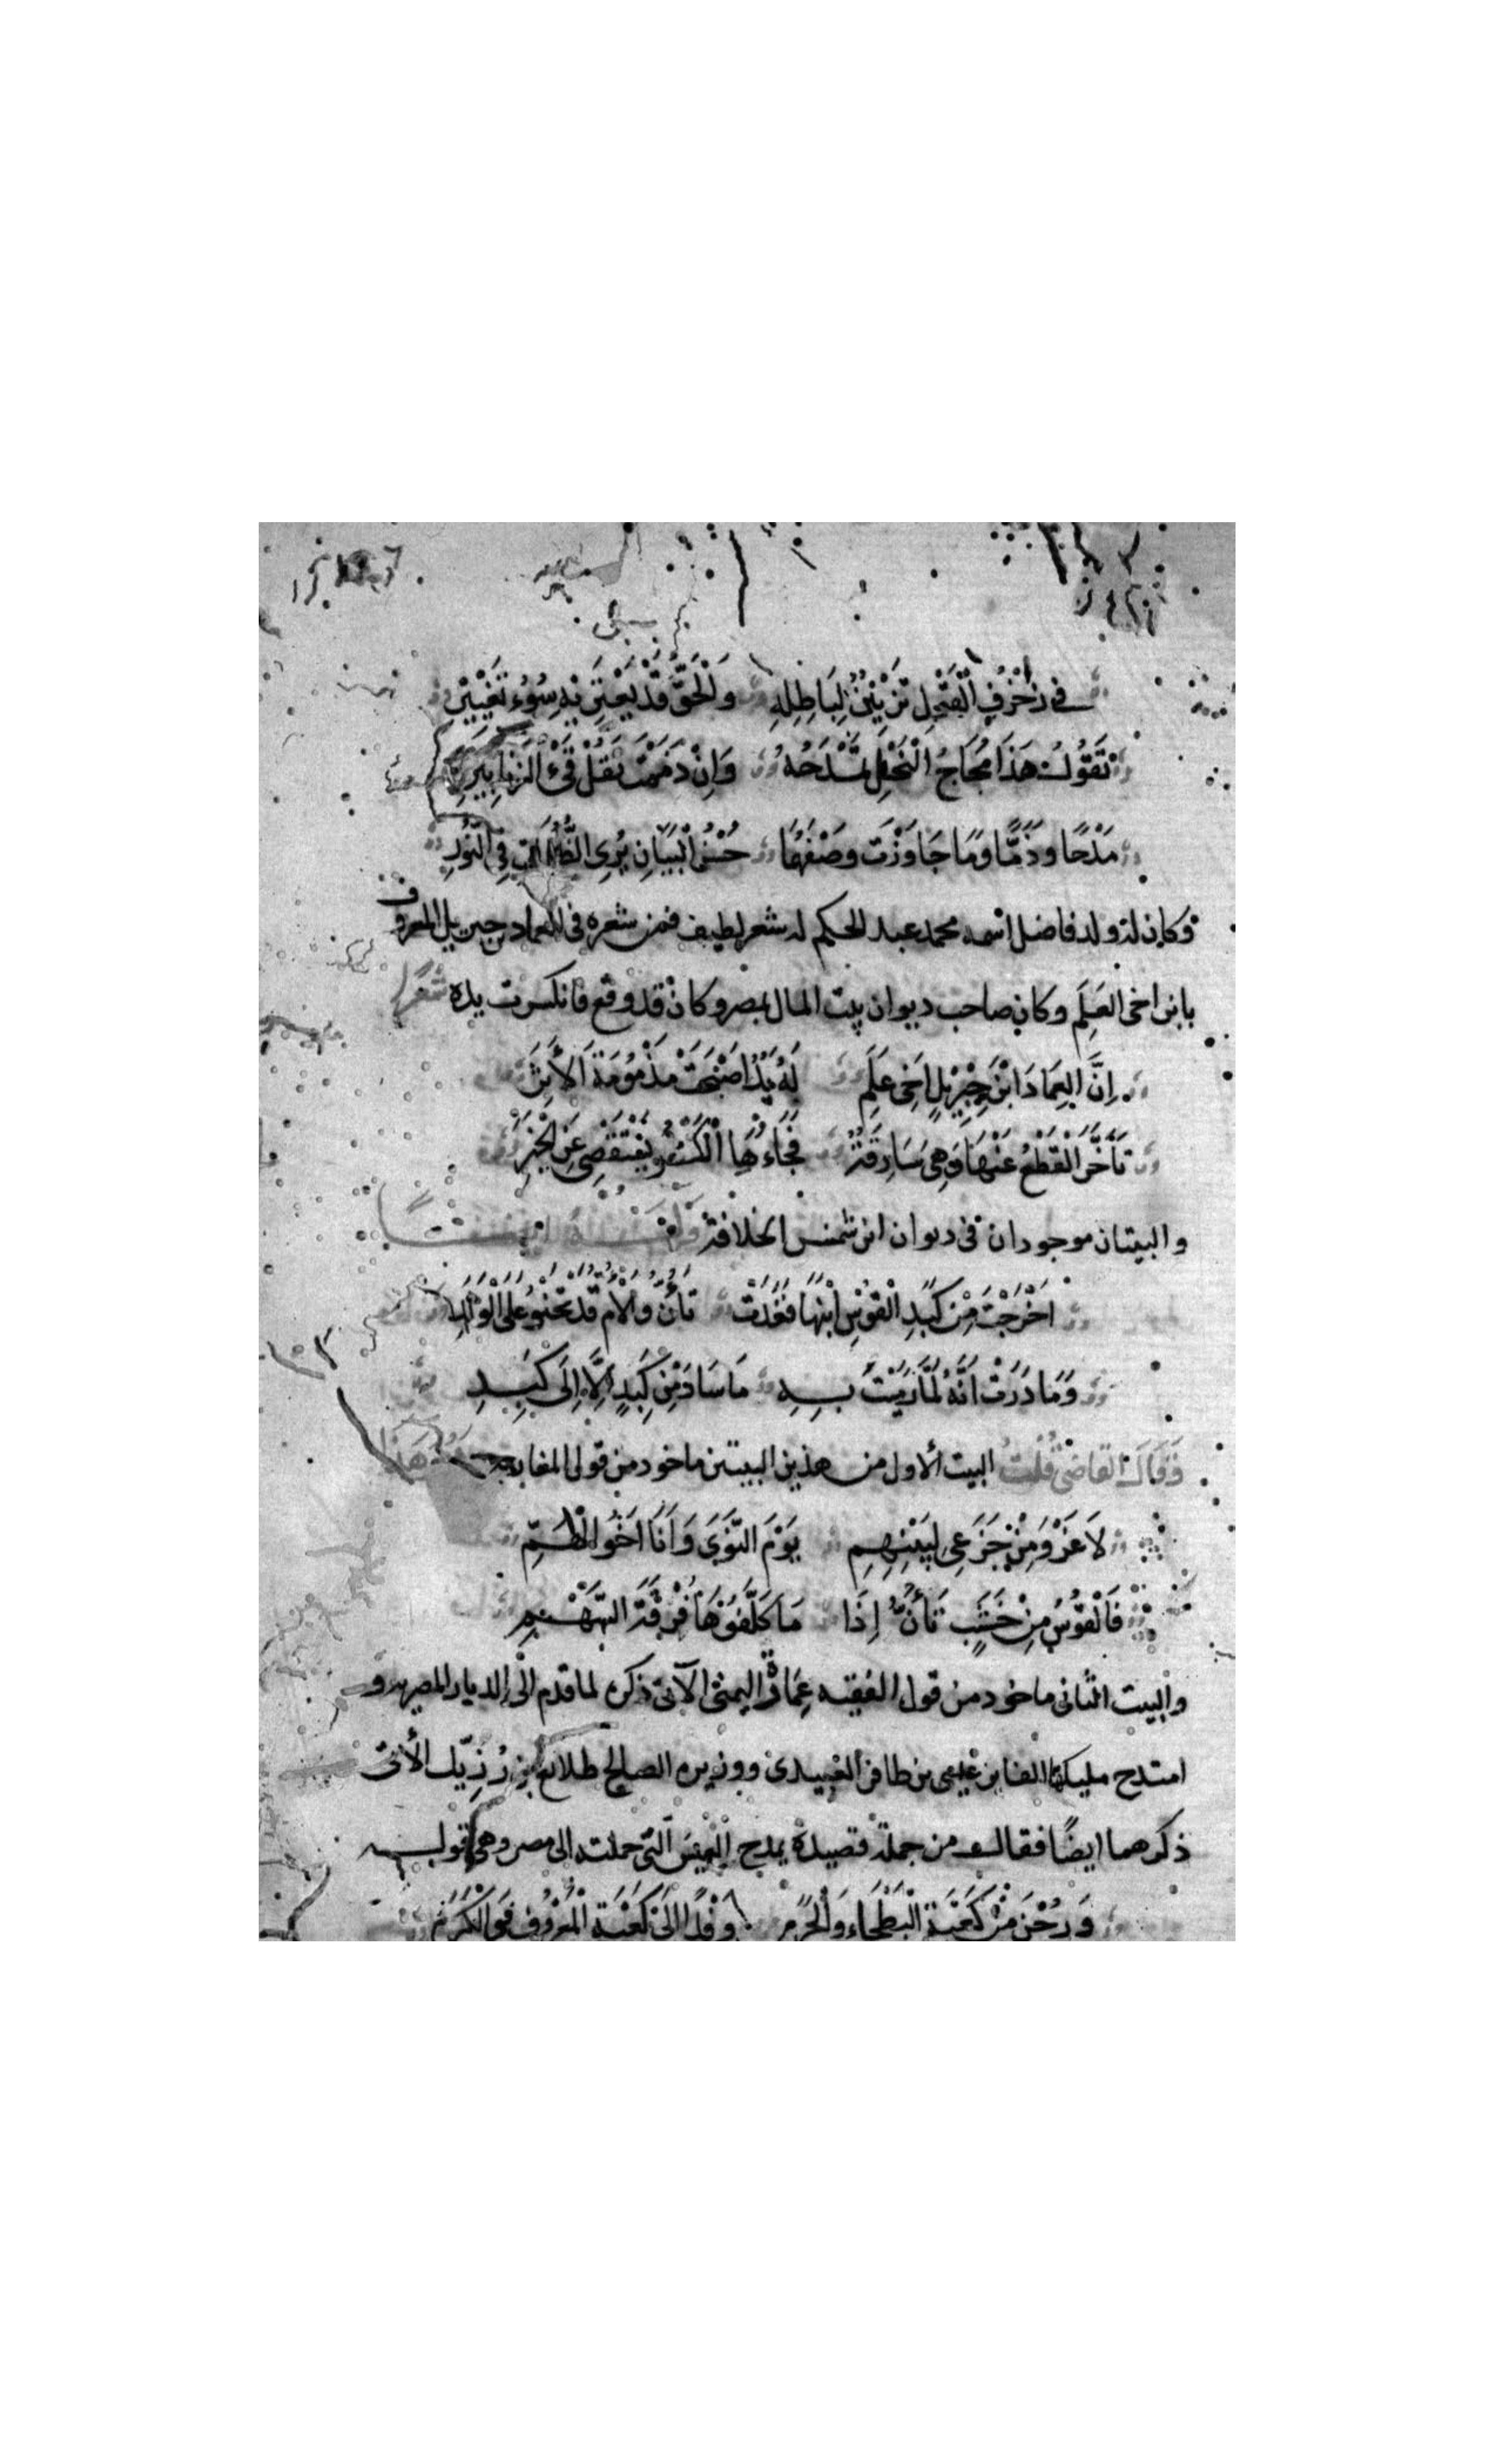 في زُخْرُفِ الْقَوْلِ تَزْيِيْنٌ لِبَاطِلِهِ وَالْحَقُّ قَدْ يَعْتَرِيْهِ سُوْءُ تَغْيِيْرِ
تَقُوْلُ هَذَا مُجَاجُ الْنَحْلِ تَمْدَحُهُ وَاِنْ ذَمَمْتَ تَقُلْ قَيْءُ الزَنَابِيْرِ
مَدْحًا وذَمًّا وَمَا جَاوَزْتَ وصْفَهُمَا حُسْنُ الْبَيَانِ يُرِي الظَّلْمَاءَ فِي النُّورِ
وكان له ولد فاضل اسمه محمد عبد الحكم له شعر لطيف فمن شعره في العماد جبريل المعروف
بابن اخي العَلَم وكان صاحب ديوان بيت المال بمصر وكان قد وقع فانكسرت يده شعرًا
اِنَّ العِمَادَ ابْنَ جِبْرِيْلٍ اَخِي عَلَمِ لَهُ يَدٌ اَصْبَحَتْ مَذْمُوْمَةَ الأَثَرِ
تَأَخَّرَ الْقَطْعُ عَنْهَا وَهِيَ سَارِقَةٌ فَجَاءَهَا الْكَسْرُ يَسْتَقْصِي عَنِ الْخَبَرِ
والبيتان موجودان في ديوان ابن شمس الخلافة
اَخْرَجْتَ مِنْ كَبَدِ الْقَوْسِ ابْنَهَا فَغَدَتْ تَأَنُّ والأُمُّ قَدْ تَحْنُوْ عَلَى الْوَلَدِ
وَمَا دَرَتْ اَنَّهُ لَمَّا رَمَيْتَ بِهِ مَا سَارَ مِنْ كَبِدٍ اِلَّا اِلَى كَبِدِ
وَقَالَ القاضي قُلتُ البيت الأول من هذين البيتين ماخود من قول المغاربة هَذا
لَا غَرْوَ مِنْ جَزَعِي لِبَيْنِهِمِ يَوْمَ النَّوَى وَاَنَا اَخُو الْهَمِّ
فَالْقَوْسُ مِنْ خَشَبٍ تَأَنُّ اِذَا مَا كَلَّفُوْهَا فُرْقَةَ السَّهْمِ
والبيت الثاني ماخود من قول الفقيه عِمَارة اليمني الآتي ذكره لما قدم الى الديار المصريه و
امتدح مليكها الفايز عيسى بن ظافر العبيدي ووزيره الصالح طلائع بن رُزِّيك الأتي
ذكرهما ايضًا فقال من جملة قصيدة يمدح العِيْسَ التي حملته الى مصر وهي قوله
وَرُحْنَ مِنْ كَعْبَةِ الْبَطْحَاءِ وَالْحَرَمِ وفْدًا اِلَى كَعْبَةِ الْمَعْرُوْفِ وَالْكَرَمِ